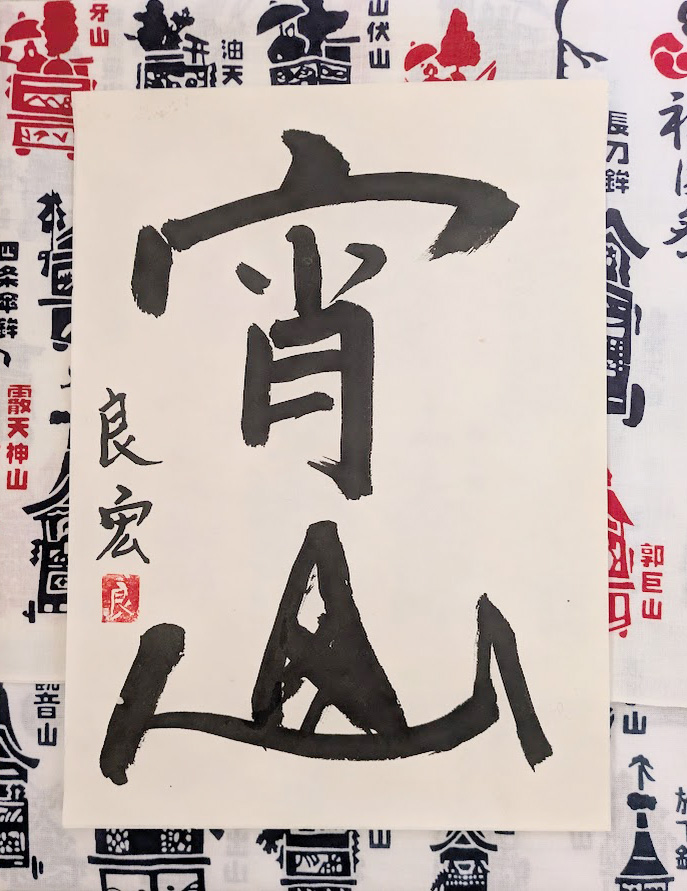 宵山
良宏
良
牙山
油天
山伏山
長刀鉾
四条傘鉾
霰天神山
郭巨山
観音山
山